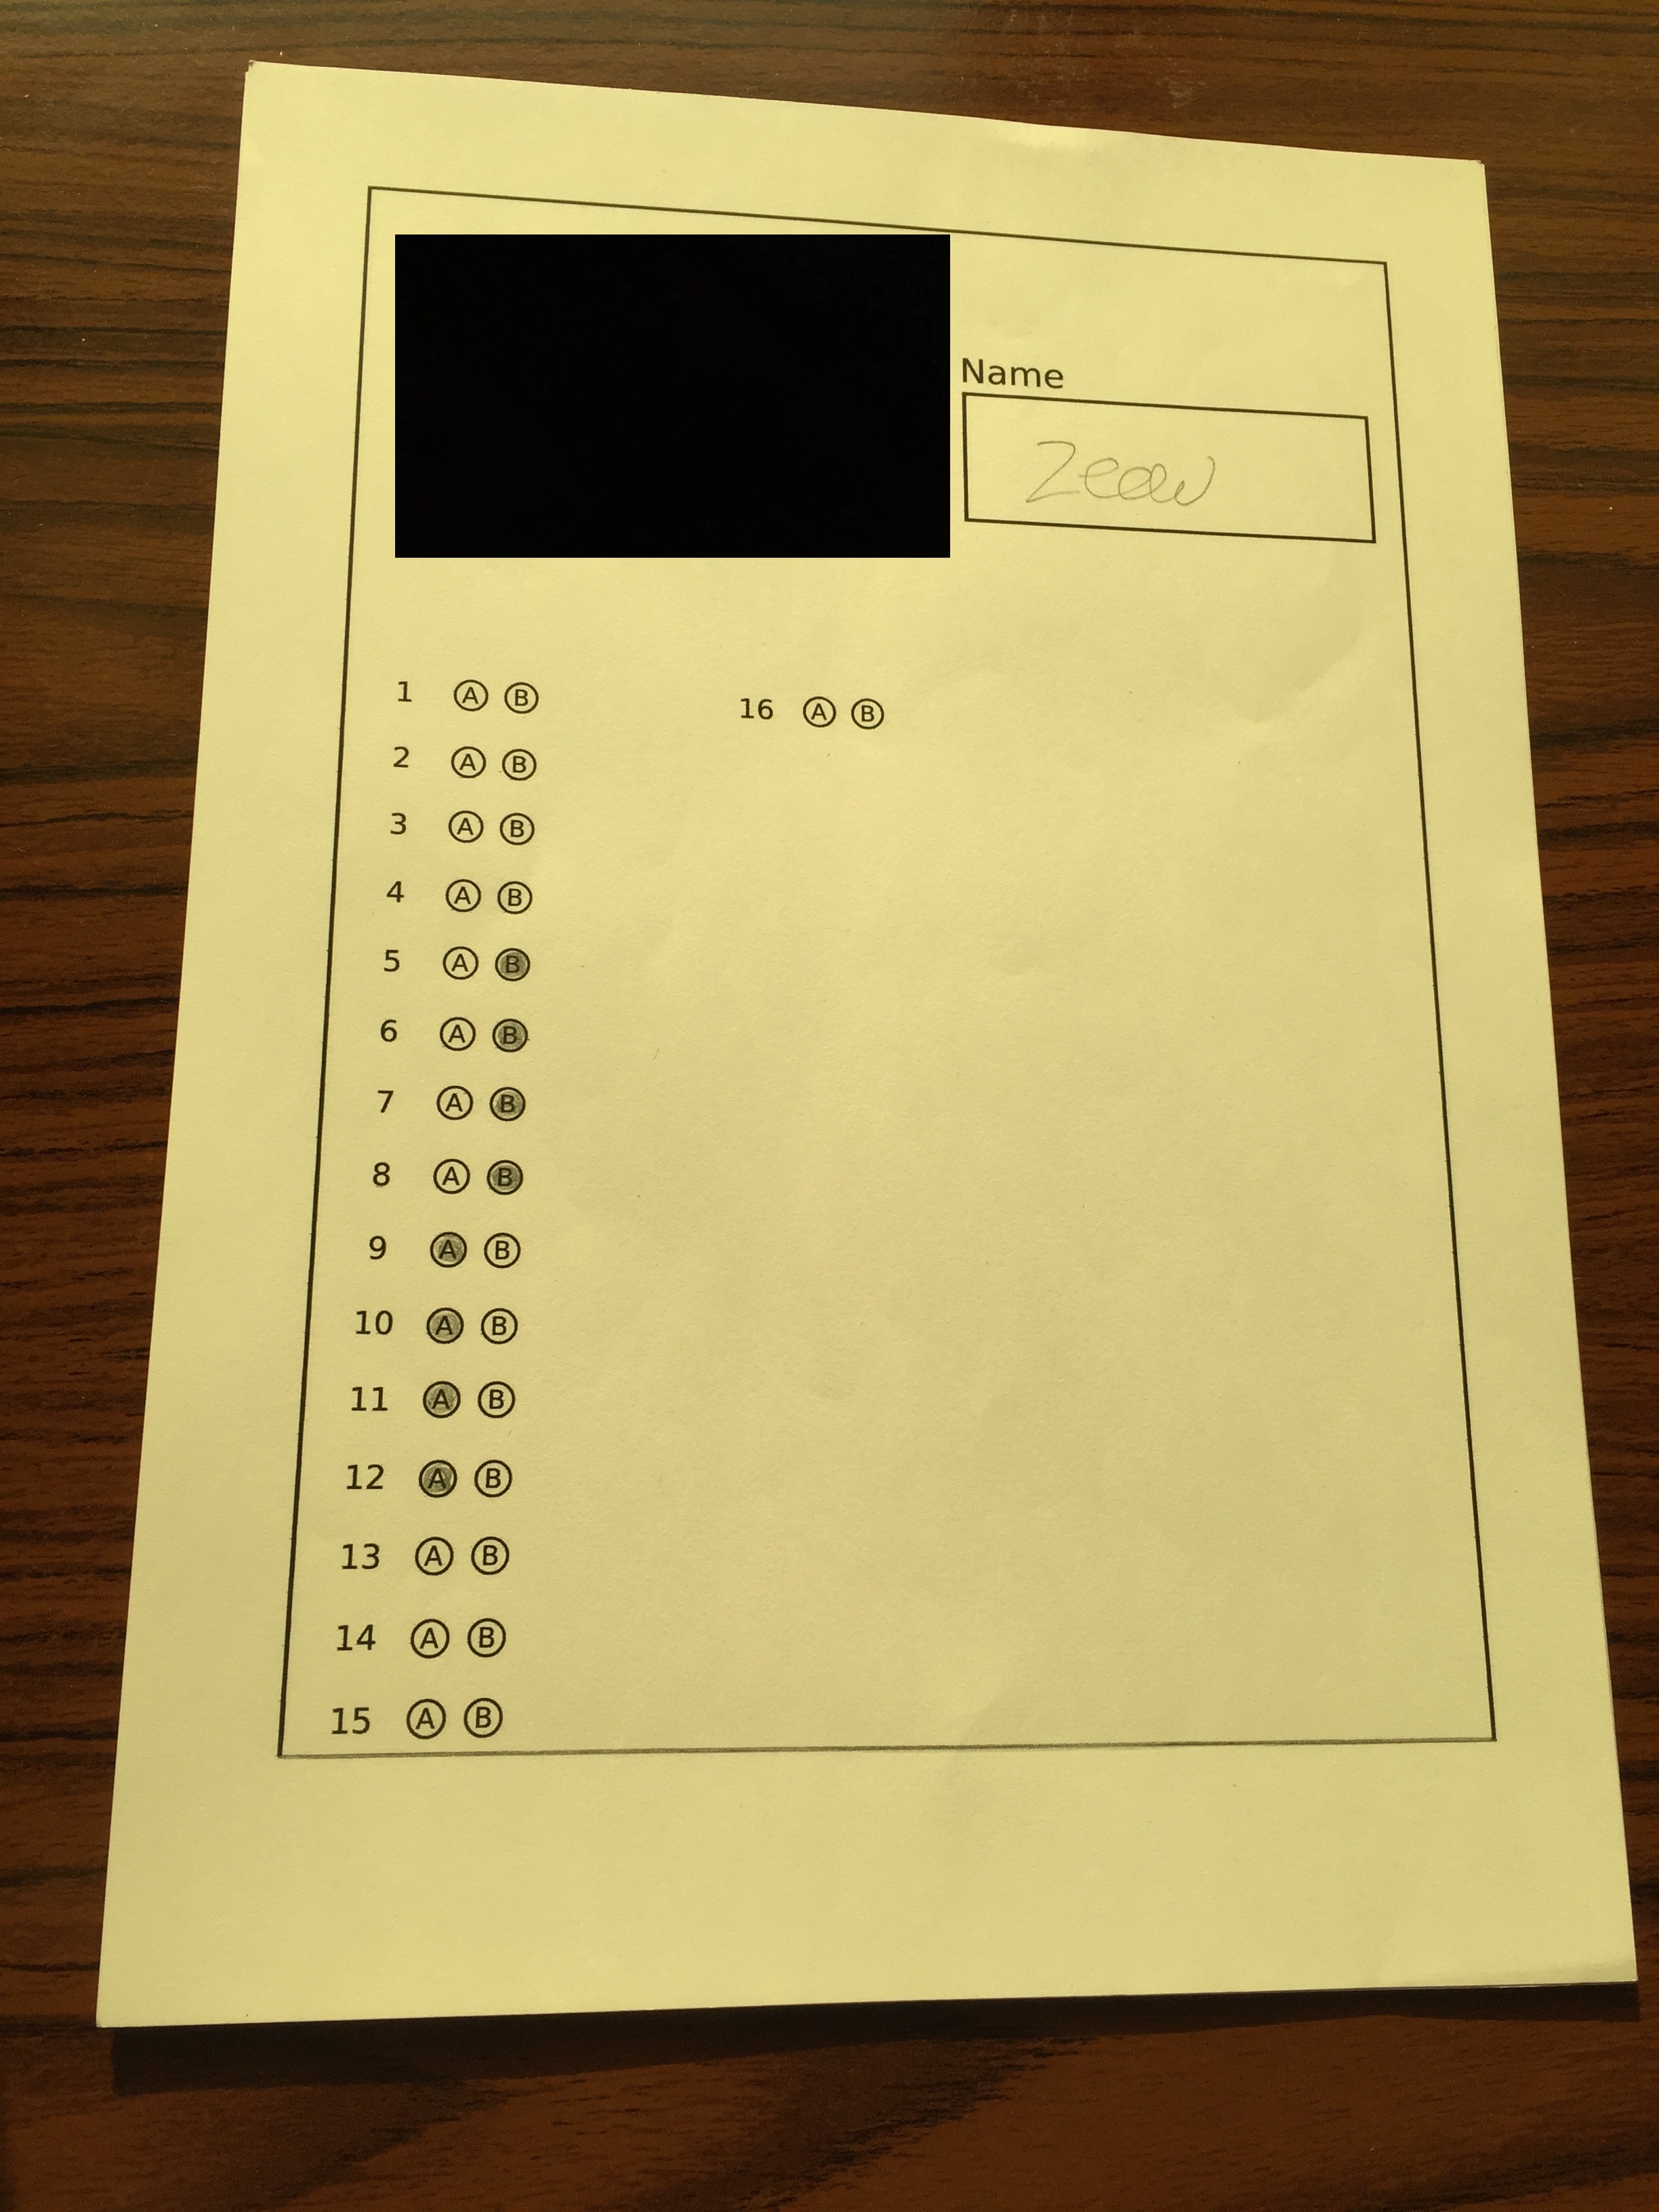 Name
1 A B
16 A B
2 A B
3 A B
4 A B
5 A B
6 A B
7 A B
8 A B
9 A B
10 A B
11 A B
12 A B
13 A B
14 A B
15 A B